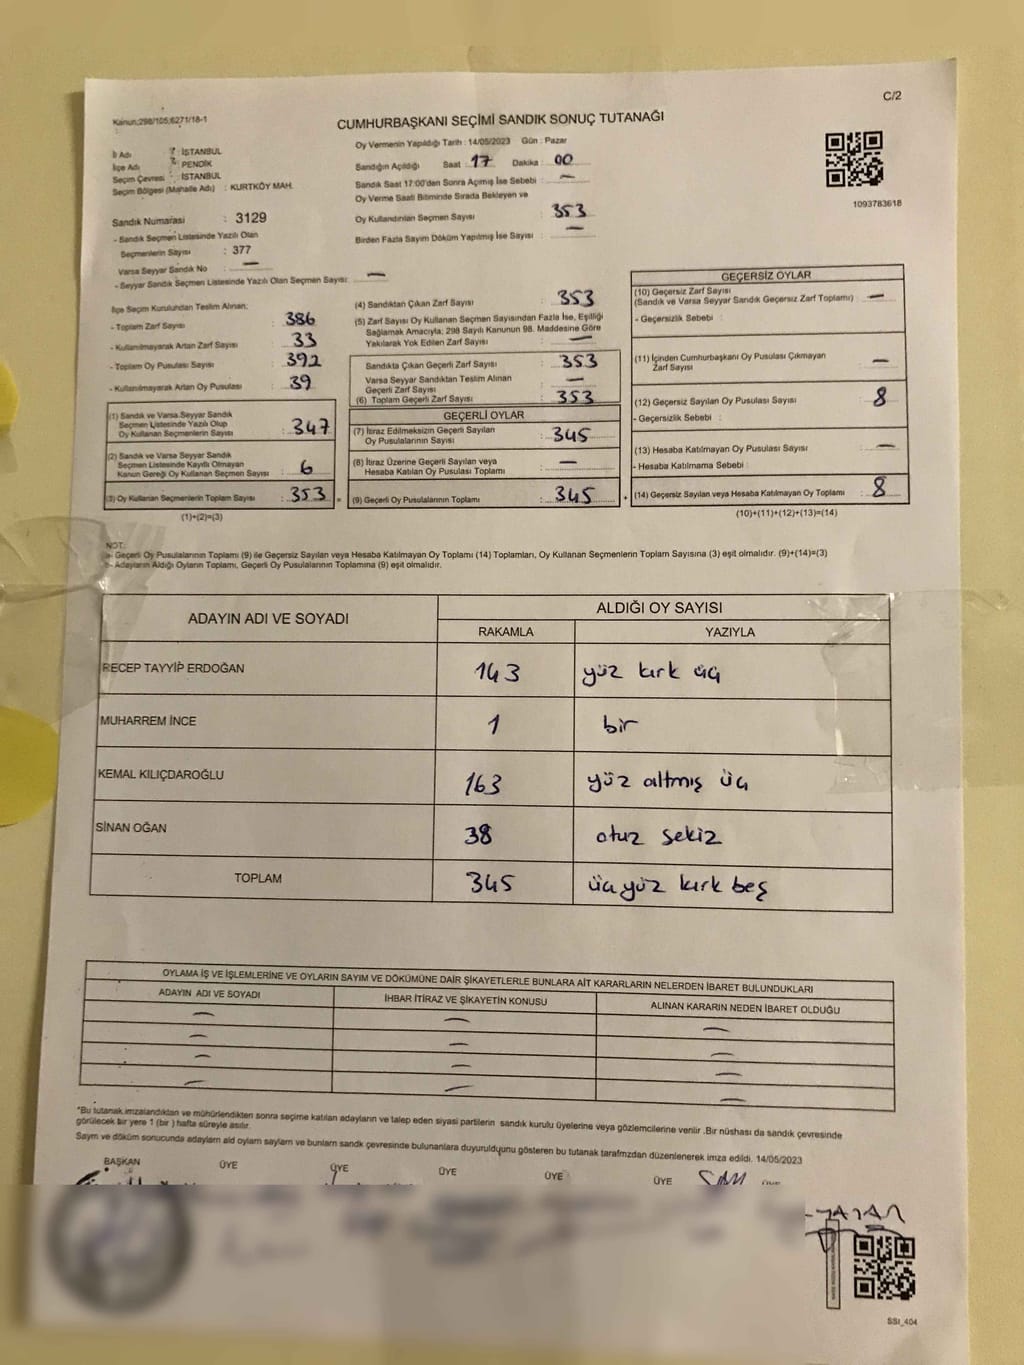 C/2
Kanun:298/105,6271/18-1
CUMHURBAŞKANI SEÇİMİ SANDIK SONUÇ TUTANAĞI
İl Adı : İSTANBUL
İlçe Adı : PENDİK
Seçim Çevresi : İSTANBUL
Seçim Bölgesi (Mahalle Adı) : KURTKÖY MAH.
Sandık Numarası : 3129
- Sandık Seçmen Listesinde Yazılı Olan
Seçmenlerin Sayısı : 377
Varsa Seyyar Sandık No : —
- Seyyar Sandık Seçmen Listesinde Yazılı Olan Seçmen Sayısı: —
Oy Vermenin Yapıldığı Tarih : 14/05/2023 Gün : Pazar
Sandığın Açıldığı Saat : 17 Dakika : 00
Sandık Saat 17:00'den Sonra Açmış İse Sebebi : —
Oy Verme Saati Bitiminde Sırada Bekleyen ve
Oy Kullandırılan Seçmen Sayısı : 353
Birden Fazla Sayım Döküm Yapılmış İse Sayısı : —
1093783618
İlçe Seçim Kurulundan Teslim Alınan;
- Toplam Zarf Sayısı : 386
- Kullanılmayarak Artan Zarf Sayısı : 33
- Toplam Oy Pusulası Sayısı : 392
- Kullanılmayarak Artan Oy Pusulası : 39
(1) Sandık ve Varsa Seyyar Sandık
Seçmen Listesinde Yazılı Olup
Oy Kullanan Seçmenlerin Sayısı : 347
(2) Sandık ve Varsa Seyyar Sandık
Seçmen Listesinde Kayıtlı Olmayan
Kanun Gereği Oy Kullanan Seçmen Sayısı : 6
(3) Oy Kullanan Seçmenlerin Toplam Sayısı : 353 =
(1)+(2)=(3)
(4) Sandıktan Çıkan Zarf Sayısı : 353
(5) Zarf Sayısı Oy Kullanan Seçmen Sayısından Fazla İse, Eşitliği
Sağlamak Amacıyla; 298 Sayılı Kanunun 98. Maddesine Göre
Yakılarak Yok Edilen Zarf Sayısı : —
Sandıkta Çıkan Geçerli Zarf Sayısı : 353
Varsa Seyyar Sandıktan Teslim Alınan
Geçerli Zarf Sayısı : —
(6) Toplam Geçerli Zarf Sayısı : 353
GEÇERLİ OYLAR
(7) İtiraz Edilmeksizin Geçerli Sayılan
Oy Pusulalarının Sayısı : 345
(8) İtiraz Üzerine Geçerli Sayılan veya
Hesaba Katılan Oy Pusulası Toplamı : —
(9) Geçerli Oy Pusulalarının Toplamı : 345 +
GEÇERSİZ OYLAR
(10) Geçersiz Zarf Sayısı
(Sandık ve Varsa Seyyar Sandık Geçersiz Zarf Toplamı) : —
- Geçersizlik Sebebi :
(11) İçinden Cumhurbaşkanı Oy Pusulası Çıkmayan
Zarf Sayısı : —
(12) Geçersiz Sayılan Oy Pusulası Sayısı : 8
- Geçersizlik Sebebi :
(13) Hesaba Katılmayan Oy Pusulası Sayısı : —
- Hesaba Katılmama Sebebi :
(14) Geçersiz Sayılan veya Hesaba Katılmayan Oy Toplamı : 8
(10)+(11)+(12)+(13)=(14)
NOT:
a- Geçerli Oy Pusulalarının Toplamı (9) ile Geçersiz Sayılan veya Hesaba Katılmayan Oy Toplamı (14) Toplamları, Oy Kullanan Seçmenlerin Toplam Sayısına (3) eşit olmalıdır. (9)+(14)=(3)
b- Adayların Aldığı Oyların Toplamı, Geçerli Oy Pusulalarının Toplamına (9) eşit olmalıdır.
ADAYIN ADI VE SOYADI ALDIĞI OY SAYISI
RAKAMLA YAZIYLA
RECEP TAYYİP ERDOĞAN 143 yüz kırk üç
MUHARREM İNCE 1 bir
KEMAL KILIÇDAROĞLU 163 yüz altmış üç
SİNAN OĞAN 38 otuz sekiz
TOPLAM 345 üçyüz kırk beş
OYLAMA İŞ VE İŞLEMLERİNE VE OYLARIN SAYIM VE DÖKÜMÜNE DAİR ŞİKAYETLERLE BUNLARA AİT KARARLARIN NELERDEN İBARET BULUNDUKLARI
ADAYIN ADI VE SOYADI İHBAR İTİRAZ VE ŞİKAYETİN KONUSU ALINAN KARARIN NEDEN İBARET OLDUĞU
— — —
— — —
— — —
— — —
*Bu tutanak imzalandıktan ve mühürlendikten sonra seçime katılan adayların ve talep eden siyasi partilerin sandık kurulu üyelerine veya gözlemcilerine verilir .Bir nüshası da sandık çevresinde
görülecek bir yere 1 (bir ) hafta süreyle asılır.
Sayım ve döküm sonucunda adayların ald oylarn saylarn ve bunların sandk çevresinde bulunanlara duyurulduğunu gösteren bu tutanak tarafmzdan düzenlenerek imza edildi. 14/05/2023
BAŞKAN ÜYE ÜYE ÜYE ÜYE ÜYE
SSI_404